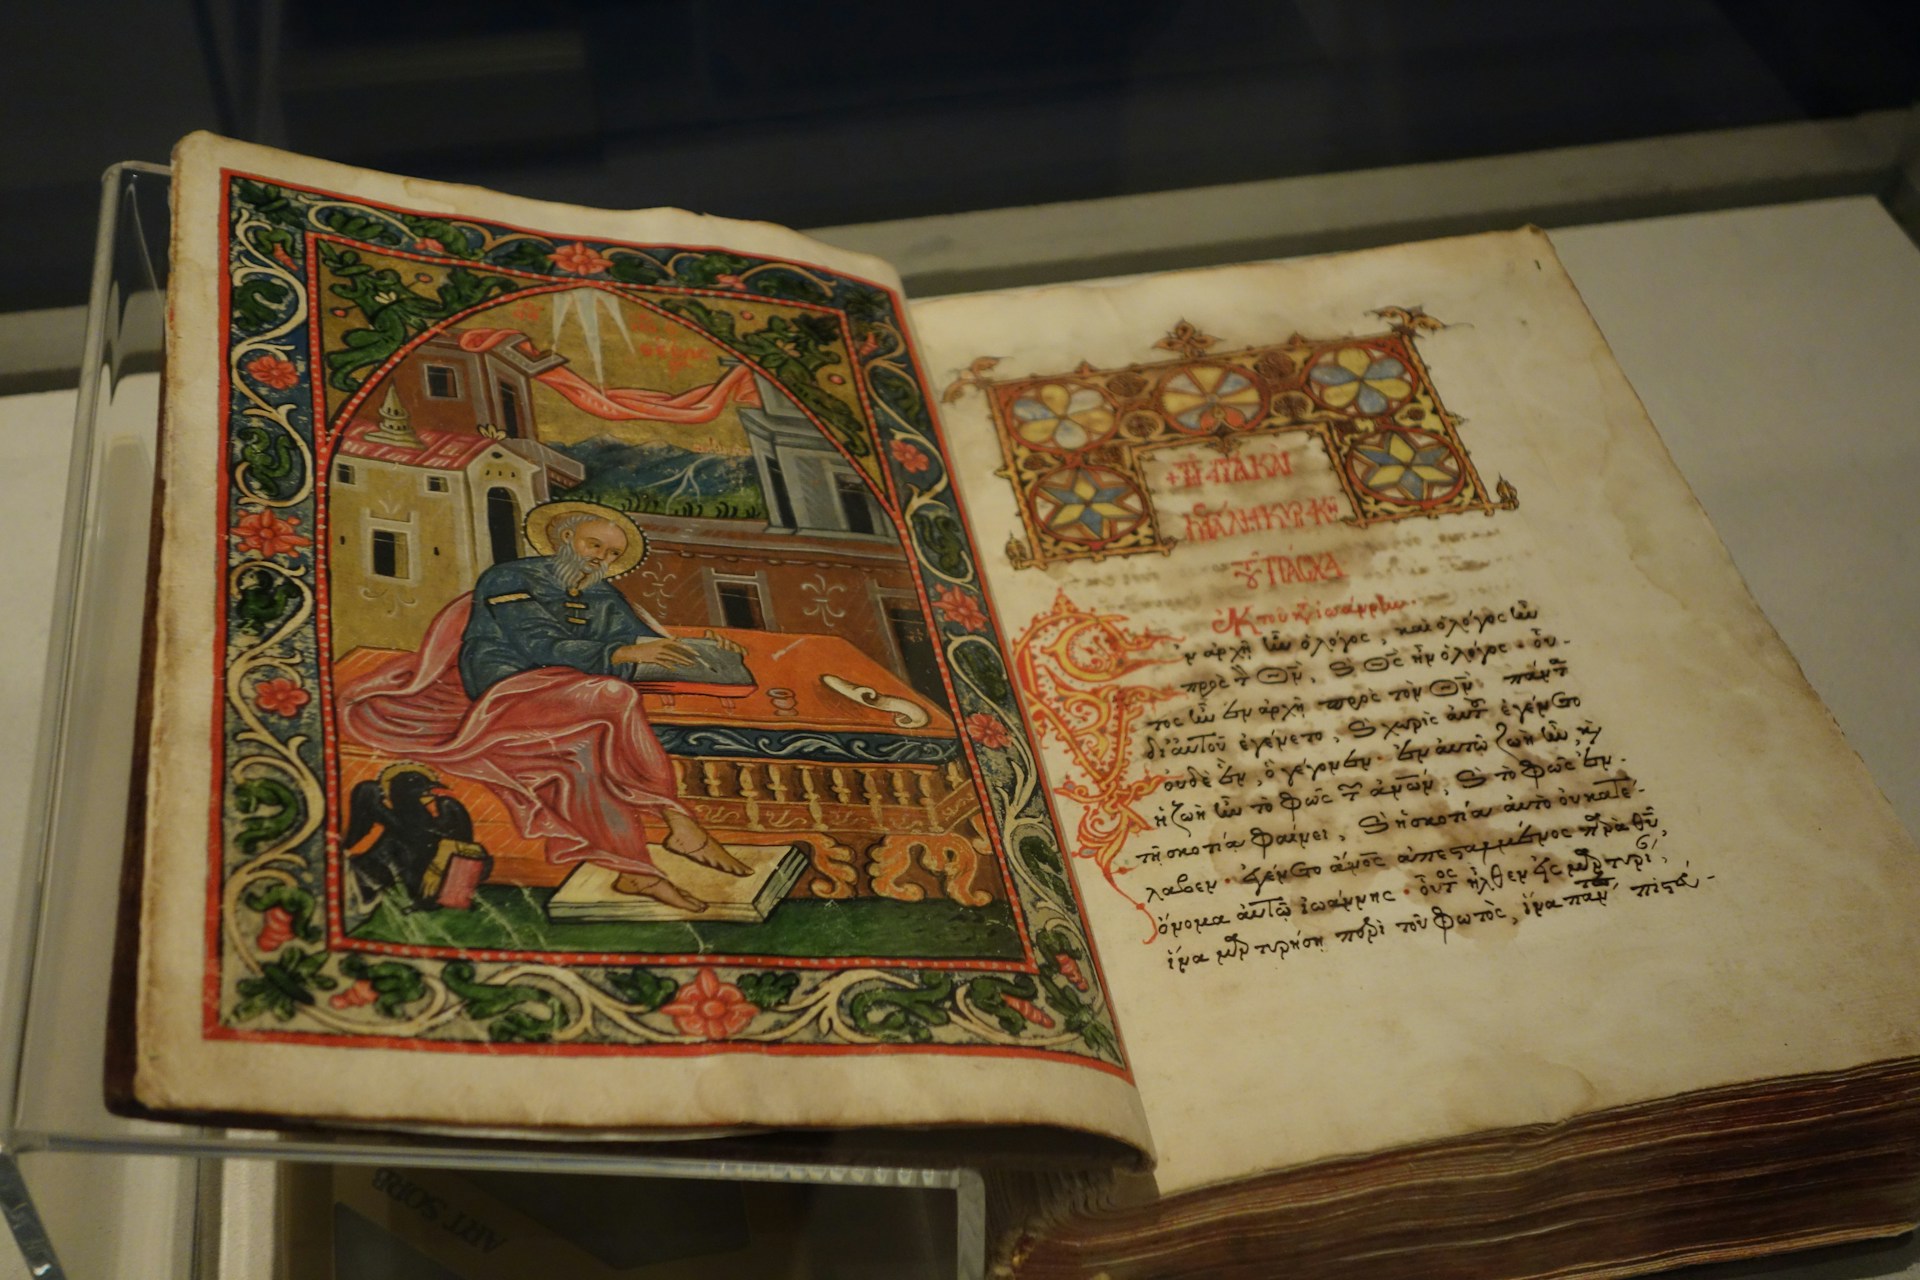 + Τῇ ἁγίᾳ καὶ
μεγάλῃ κυριακῇ
τοῦ πάσχα·
ἐκ τοῦ κατὰ ἰωάννην·
Ἐν ἀρχῇ ἦν ὁ λόγος, καὶ ὁ λόγος ἦν
πρὸς τὸν Θν, καὶ Θς ἦν ὁ λόγος· οὗ-
τος ἦν ἐν ἀρχῇ πρὸς τὸν Θν· πάντ
δι' αὐτοῦ ἐγένετο, καὶ χωρὶς αὐτοῦ ἐγένετο
οὐδὲ ἓν, ὃ γέγονεν· ἐν αὐτῷ ζωὴ ἦν, κὶ
ἡ ζωὴ ἦν τὸ φῶς τῶν ἀνων, καὶ τὸ φῶς ἐν
τῇ σκοτίᾳ φαίνει, καὶ ἡ σκοτία αὐτὸ οὐ κατέ-
λαβεν· ἐγένετο ἄνος ἀπεσταλμένος παρὰ θυ,
ὄνομα αὐτῷ ἰωάννης· οὗτος ἦλθεν εἰς μαρτυρί,
ἵνα μαρτυρήσῃ περὶ τοῦ φωτὸς, ἵνα πάντες πιστεύ-
ART SORB